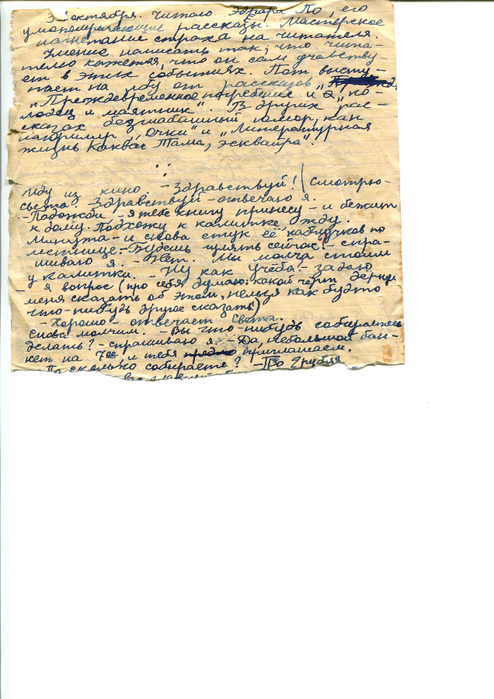 3 октября. Читаю Эдгара По его
умопомрачающие рассказы. Мастерское
нагнетание страха на читателя.
Умение написать так, что чита-
телю кажется, что он сам участву-
ет в этих событиях. Пот высту-
пает на лбу от рассказов
"Преждевременное погребение и "Ко-
лодец и маятник". В других рас-
сказах безшабашный юмор, как
например "Очки" и "Литературная
жизнь Каквас Тама, эсквайра".
Иду из кино - Здравствуй! Смотрю-
Светка. Здравствуй - отвечаю я.
- Подожди! я тебе книгу принесу - и бежит
к дому. Подхожу к калитке. Жду.
Минута - и снова стук её каблучков по
лестнице. - Будешь гулять сейчас? - спра-
шиваю я. - Нет. Мы молча стоим
у калитки. - Ну как учёба - задаю
я вопрос (про себя думаю: какой чёрт дернул
меня сказать об этом, нельзя как будто
что-нибудь другое сказать)
- Хорошо - отвечает Света.
Снова молчим. - Вы что-нибудь собираетесь
делать? - спрашиваю я. - Да, небольшой бан-
кет на 7ое, и тебя приглашаем.
По сколько собираете? - По 2 рубля